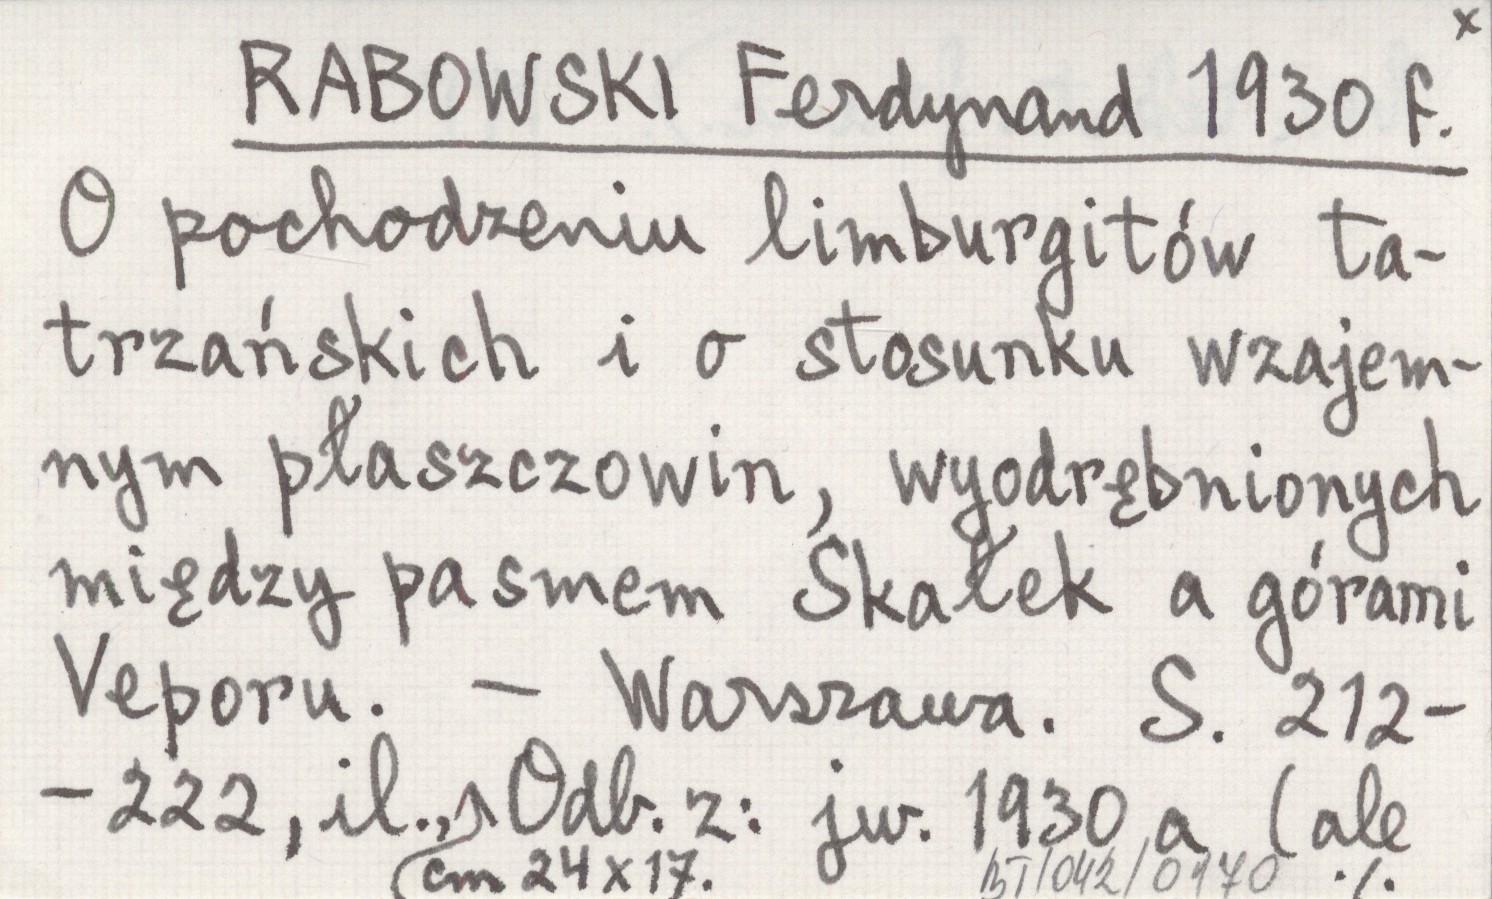 x
RABOWSKI Ferdynand 1930 f.
O pochodzeniu limburgitów ta-
trzańskich i o stosunku wzajem-
nym płaszczowin, wyodrębnionych
między pasmem Skałek a górami
Veporu. — Warszawa. S. 212-
-222, il., Odb. z: jw. 1930 a (ale
cm 24 x 17.
BT/042/0170 ./.